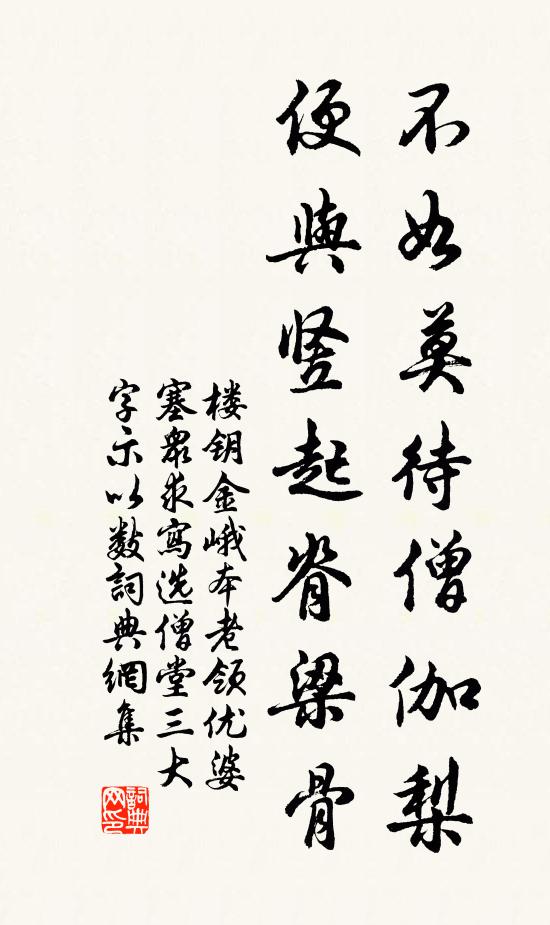 不如莫待僧伽梨
便與竖起脊梁骨
楼钥金峨本老领优婆
塞衆求寫选僧堂三大
字示以数詞典網集
詞典网印